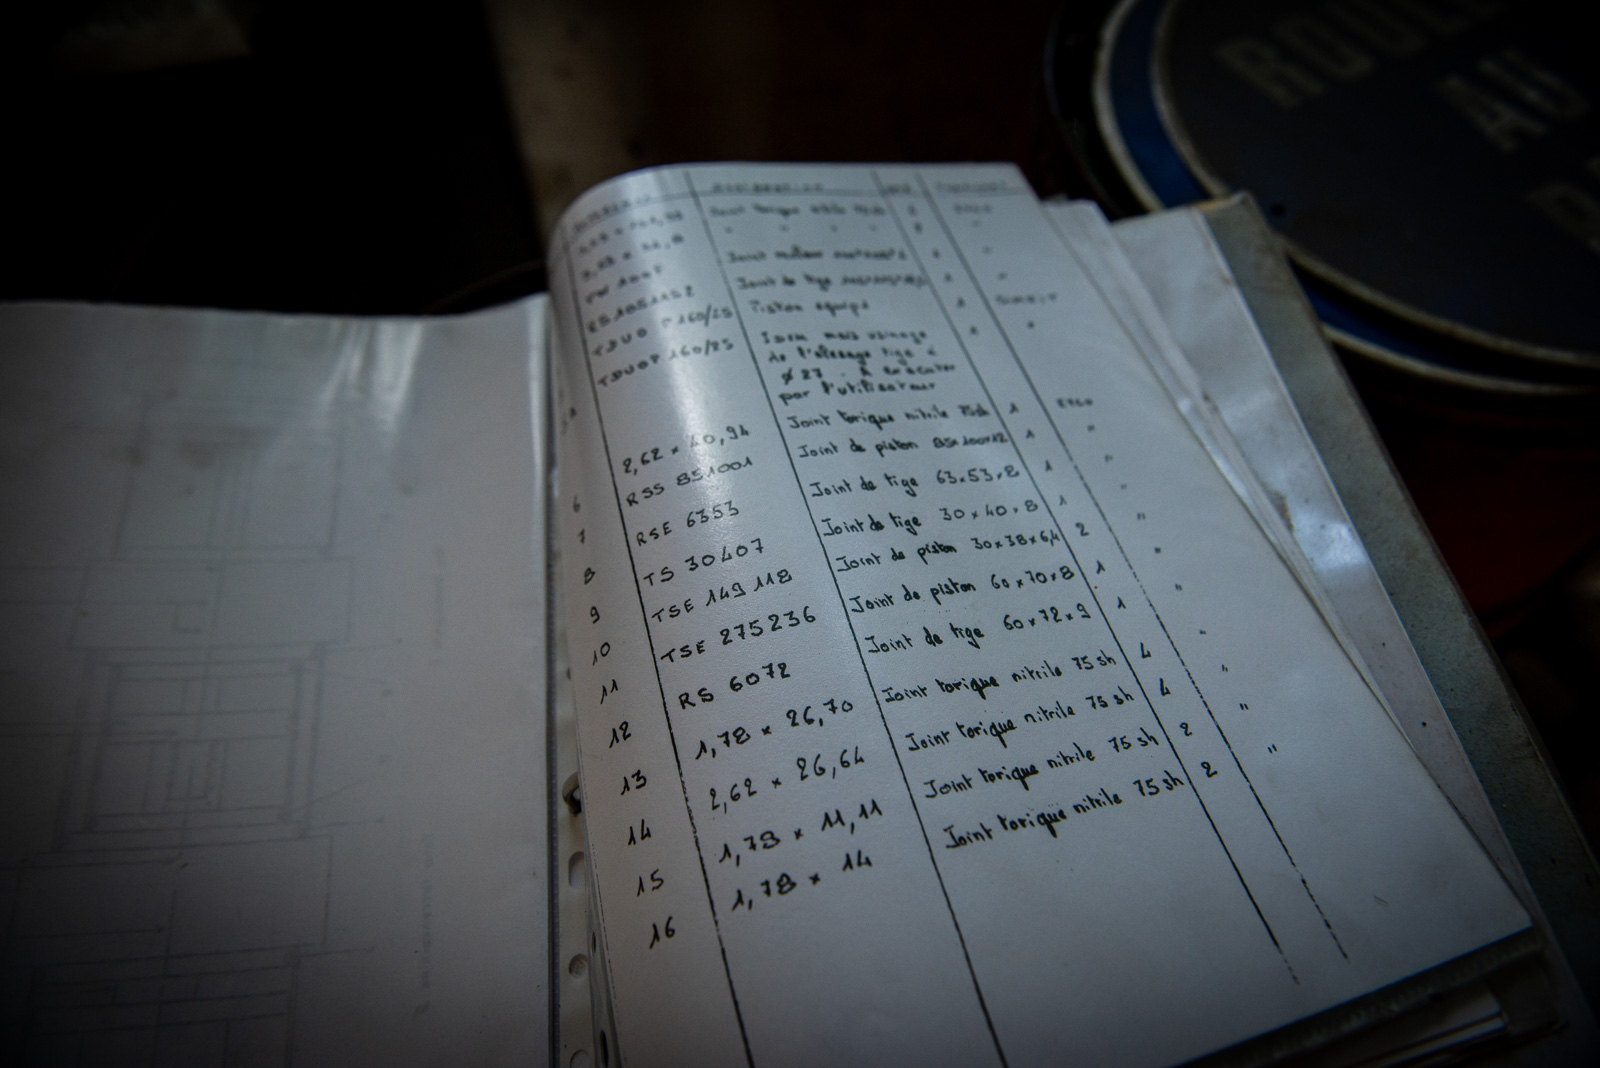 Designation
Joint torique
RS 1051152 Joint de tige 1
TDUO P 160/25 Piston équipé 1 SIMRIT
TDUOP 160/25 Idem mais usinage 1 "
de l'alésage tige à
ø 27 . A exécuter
par l'utilisateur
6 2,62 × 40,94 Joint torique nitrile 75sh 1
7 RSS 851001 Joint de piston 85×100×12 1 "
8 RSE 6353 Joint de tige 63×53×8 1 "
9 TS 30407 Joint de tige 30×40×8 1 "
10 TSE 149 118 Joint de piston 30×38×6,4 2 "
11 TSE 275236 Joint de piston 60×70×8 1 "
12 RS 6072 Joint de tige 60×72×9 1 "
13 1,78 × 26,70 Joint torique nitrile 75 sh 4 "
14 2,62 × 26,64 Joint torique nitrile 75 sh 4 "
15 1,78 × 11,11 Joint torique nitrile 75 sh 2 "
16 1,78 × 14 Joint torique nitrile 75 sh 2 "
AU